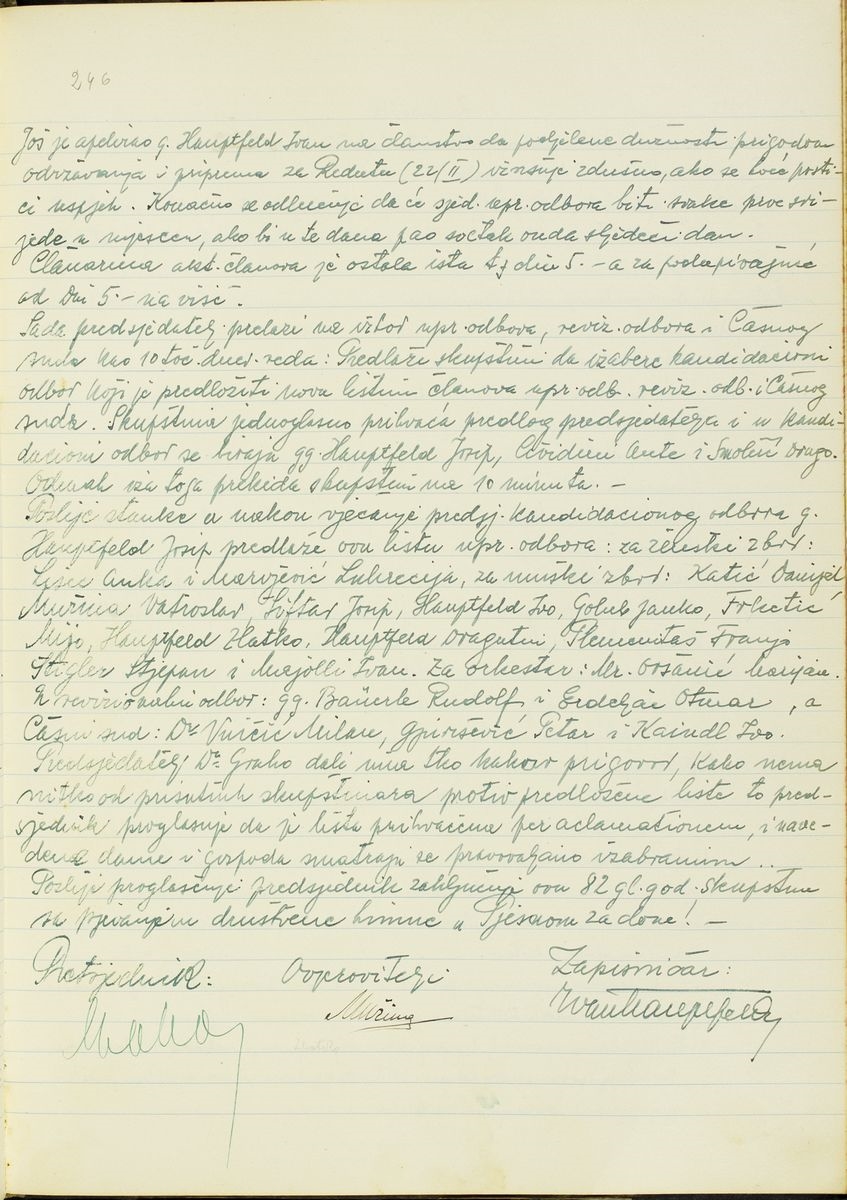 246
Još je apelirao g. Hauptfeld Ivan na članstvo da podjeljene dužnosti prigodom
održavanja i priprema za Redutu (22/II) izvršuje zdušno, ako se hoće posti-
ći uspjeh. Konačno se odlučuje da će sjed. upr. odbora biti svake prve sri-
jede u mjesecu, ako bi u te dana pao svetak onda sljedeći dan.
Članarina akt. članova je ostala ista t.j. din 5.- a za podupirajuće
od Din 5.- na više.
Sada predsjedatelj prelazi na izbor upr. odbora, reviz. odbora i Časnog
suda kao 10 toč. dnev. reda: Predlaže skupštini da izabere kandidacioni
odbor koji je predložiti novu listinu članova upr. odb. reviz. odb. i Časnog
suda. Skupština jednoglasno prihvaća predlog predsjedatelja i u kandi-
dacioni odbor se biraju gg. Hauptfeld Josip, Cividini Ante i Smolčić Drago.
Odmah iza toga prekida skupštinu na 10 minuta. -
Poslije stanke a nakon vjećanja predsj. kandidacionog odbora g.
Hauptfeld Josip predlaže ovu listu upr. odbora: za ženski zbor:
Lisac Anka i Marvjević Lukrecija, za muški zbor: Katić Danijel
Mužina Vatroslav, Šoftar Josip, Hauptfeld Ivo, Golub Janko, Frketić
Mijo, Hauptfeld Zlatko, Hauptfeld Dragutin, Plemenitaš Franjo
Štigler Stjepan i Majolli Ivan. Za orkestar: Mr. Oršanić Marijan.
U revizionalni odbor: gg. Bäuerle Rudolf i Erdeljac Otmar, a
Časni sud: Dr. Vučić Milan, Gjurašević Petar i Kaindl Ivo.
Predsjedatelj Dr. Graho dali ima tko kakov prigovor, kako nema
nitko od prisutnih skupštinara protiv predložene liste to pred-
sjednik proglasuje da je lista prihvaćena per aclamationem, i nave-
dene dame i gospoda smatraju se pravovaljano izabranim..
Poslije proglašenja predsjednik zaključuje ovu 82 gl. god. skupštinu
sa pjevanjem društvene himne „Pjesmom za dom"! -
Pretsjednik: Ovjerovitelji Zapisničar:
Mužina Ivan Hauptfeld